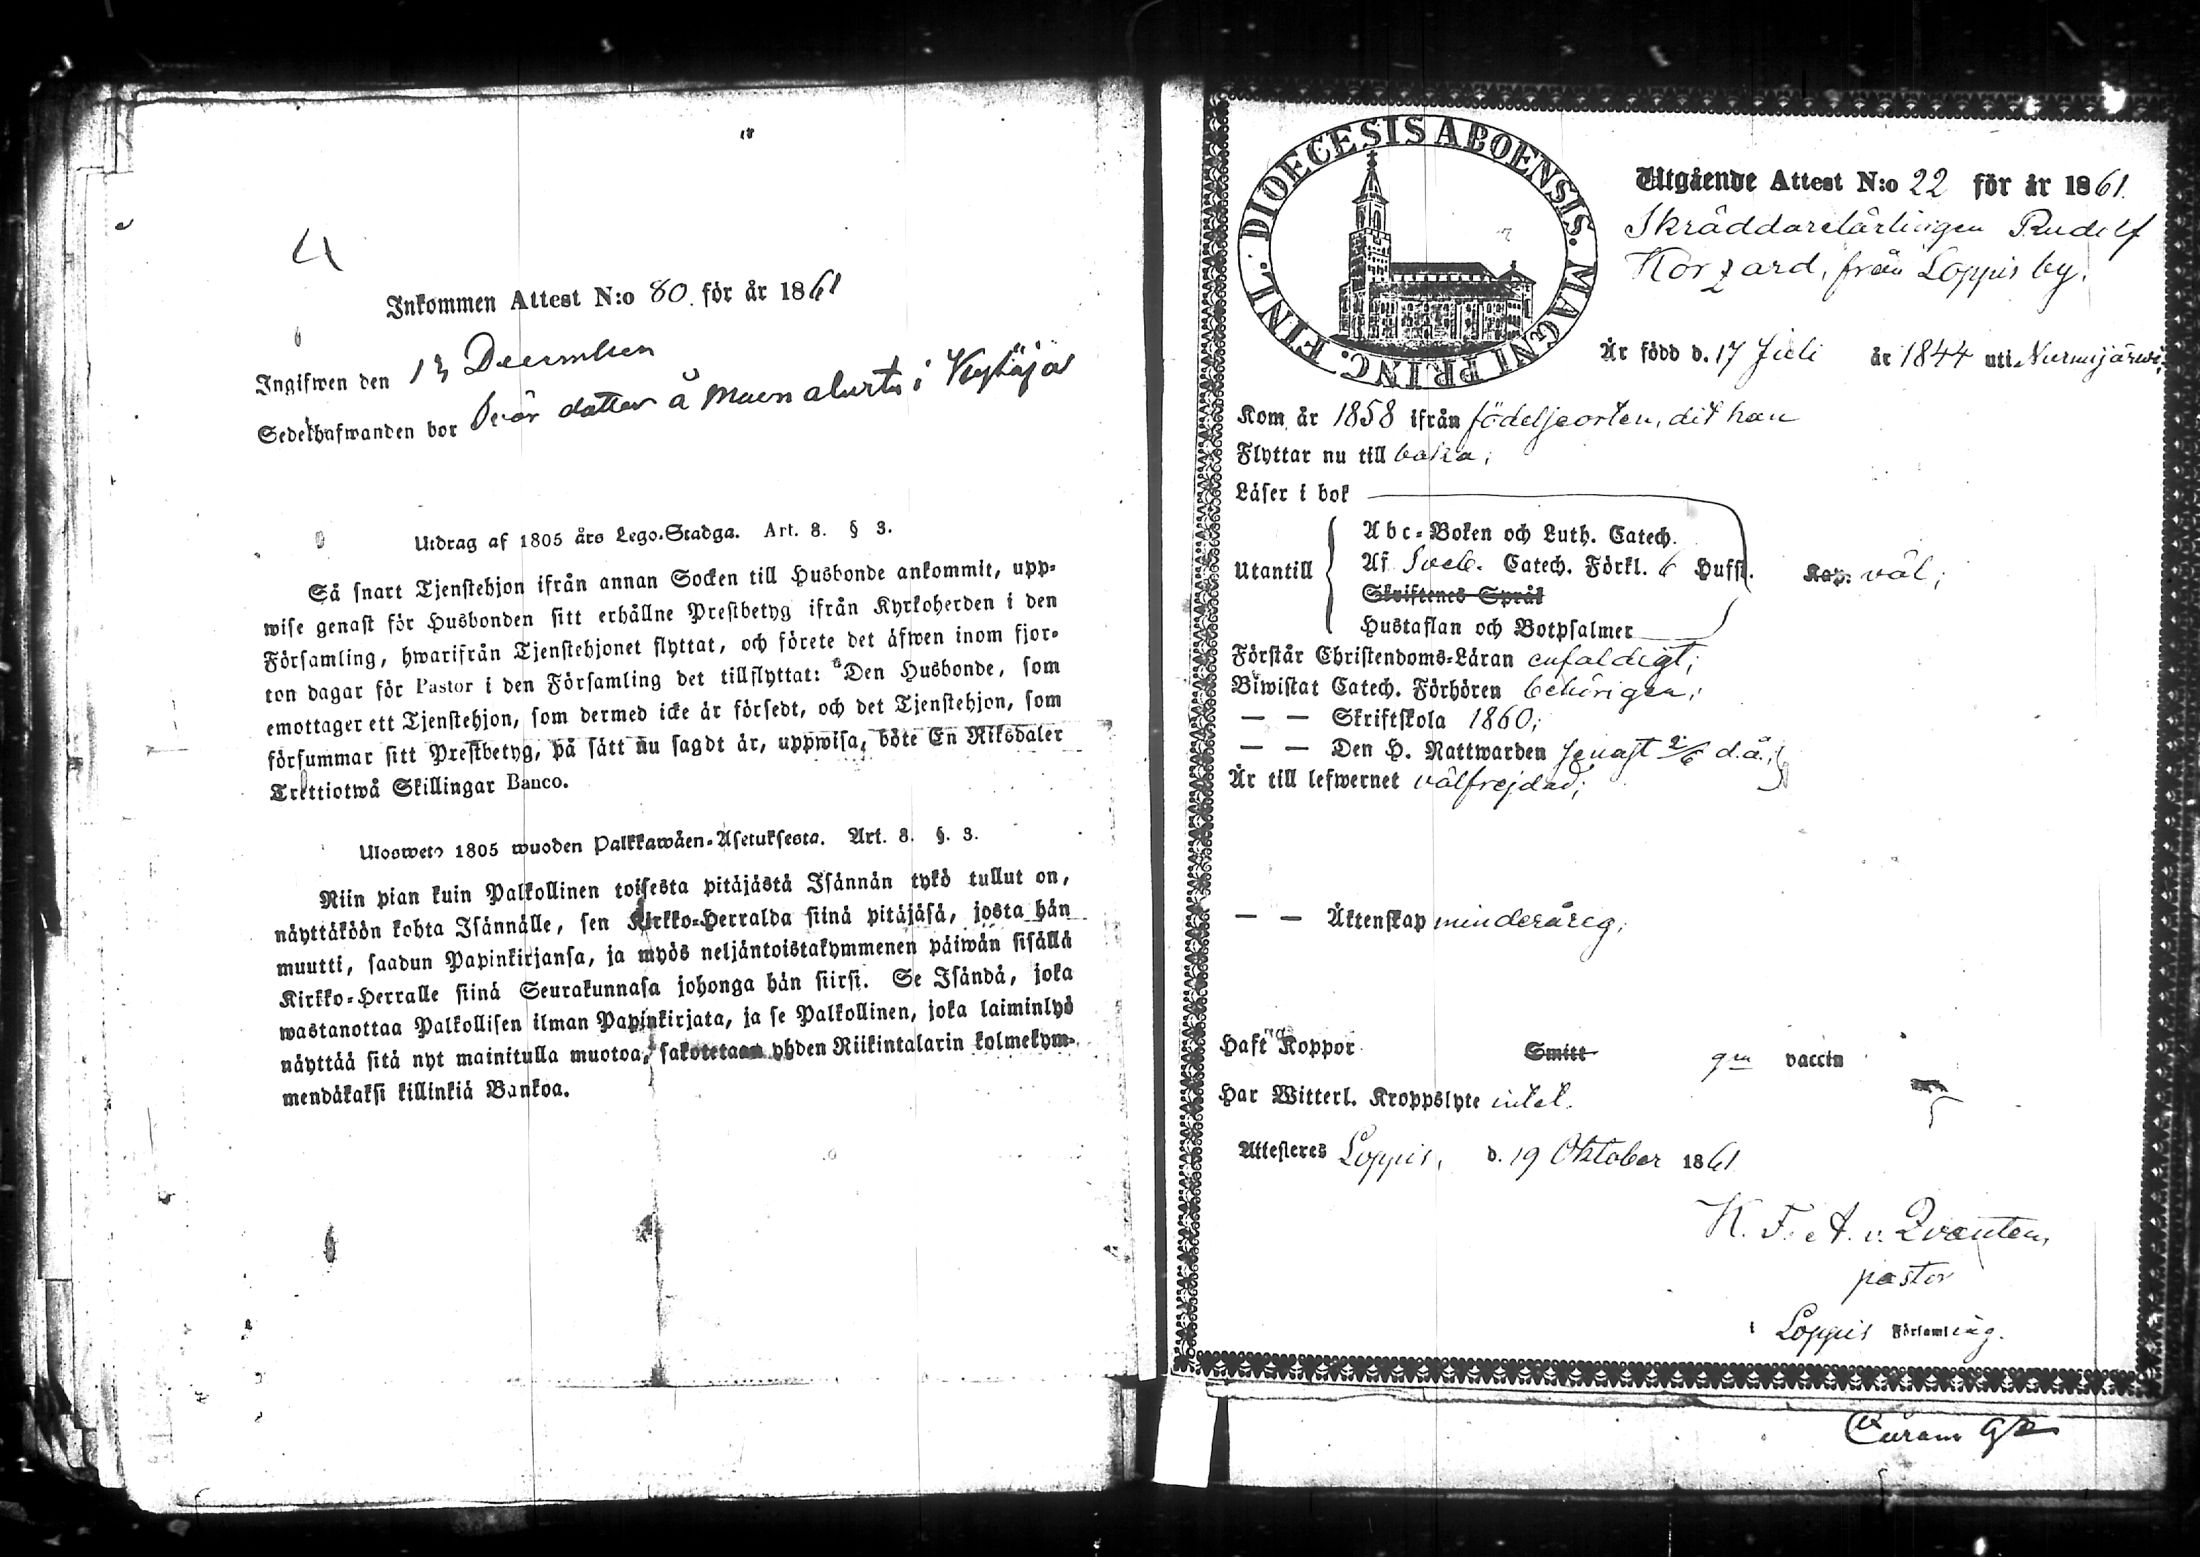 Inkommen Attest N:o 80. för år 1861
Ingifwen den 13 December
Sedelhafwanden bor
Utdrag af 1805 års Lego-Stadga. Art. 8. § 3.
Så snart Tjenstehjon ifrån annan Socken till Husbonde ankommit, upp-
wise genast för Husbonden sitt erhållne Prestbetyg ifrån Kyrkoherden i den
Församling, hwarifrån Tjenstehjonet flyttat, och förete det äfwen inom fjor-
ton dagar för Pastor i den Församling det tillflyttat: Den Husbonde, som
emottager ett Tjenstehjon, som dermed icke är försedt, och det Tjenstehjon, som
försummar sitt Prestbetyg, på sätt nu sagdt är, uppwisa, böte En Riksdaler
Trettiotwå Skillingar Banco.
Ulosweto 1805 wuoden Palkkawäen-Asetuksesta. Art. 8. §. 3.
Niin pian kuin Palkollinen toisesta pitäjästä Isännän tykö tullut on,
näyttäköön kohta Isännälle, sen Kirkko-Herralda siinä pitäjäsä, josta hän
muutti, saadun Papinkirjansa, ja myös neljäntoistakymmenen päiwän sisällä
Kirkko-Herralle siinä Seurakunnasa johonga hän siirsi. Se Isändä, joka
wastanottaa Palkollisen ilman Papinkirjata, ja se Palkollinen, joka laiminlyö
näyttää sitä nyt mainitulla muotoa, sakotetaan yhden Riikintalarin kolmekym-
mendäkaksi killinkiä Bankoa.
DIOECESIS ABOENSIS. MAGNI PRINC. FINL.
Utgående Attest N:o 22 för år 1861.
Skräddarelärlingen Rudolf
från Loppis by.
Är född d. 17 Juli år 1844 uti Nurmijärwi;
Kom år 1858 ifrån födelseorten, dit han
Flyttar nu till baka;
Läser i bok
Abc-Boken och Luth. Catech.
Utantill Af Sveb. Catech. Förkl. 6 Hufst. Kap. väl;
Skriftenes Språk
Hustaflan och Botpsalmer
Förstår Christendoms-Läran enfaldigt;
Biwistat Catech. Förhören behörigen;
— — Skriftskola 1860;
— — Den H. Nattwarden senast 2/6 d.å.;
Är till lefwernet välfrejdad;
— — Äktenskap minderårig;
Haft Koppor Smitt gm vaccin
Har Witterl. Kroppslyte intet.
Attesteres Loppis, d. 19 Oktober 1861
K. F. A. v. Qvanten,
pastor
i Loppis Församling.